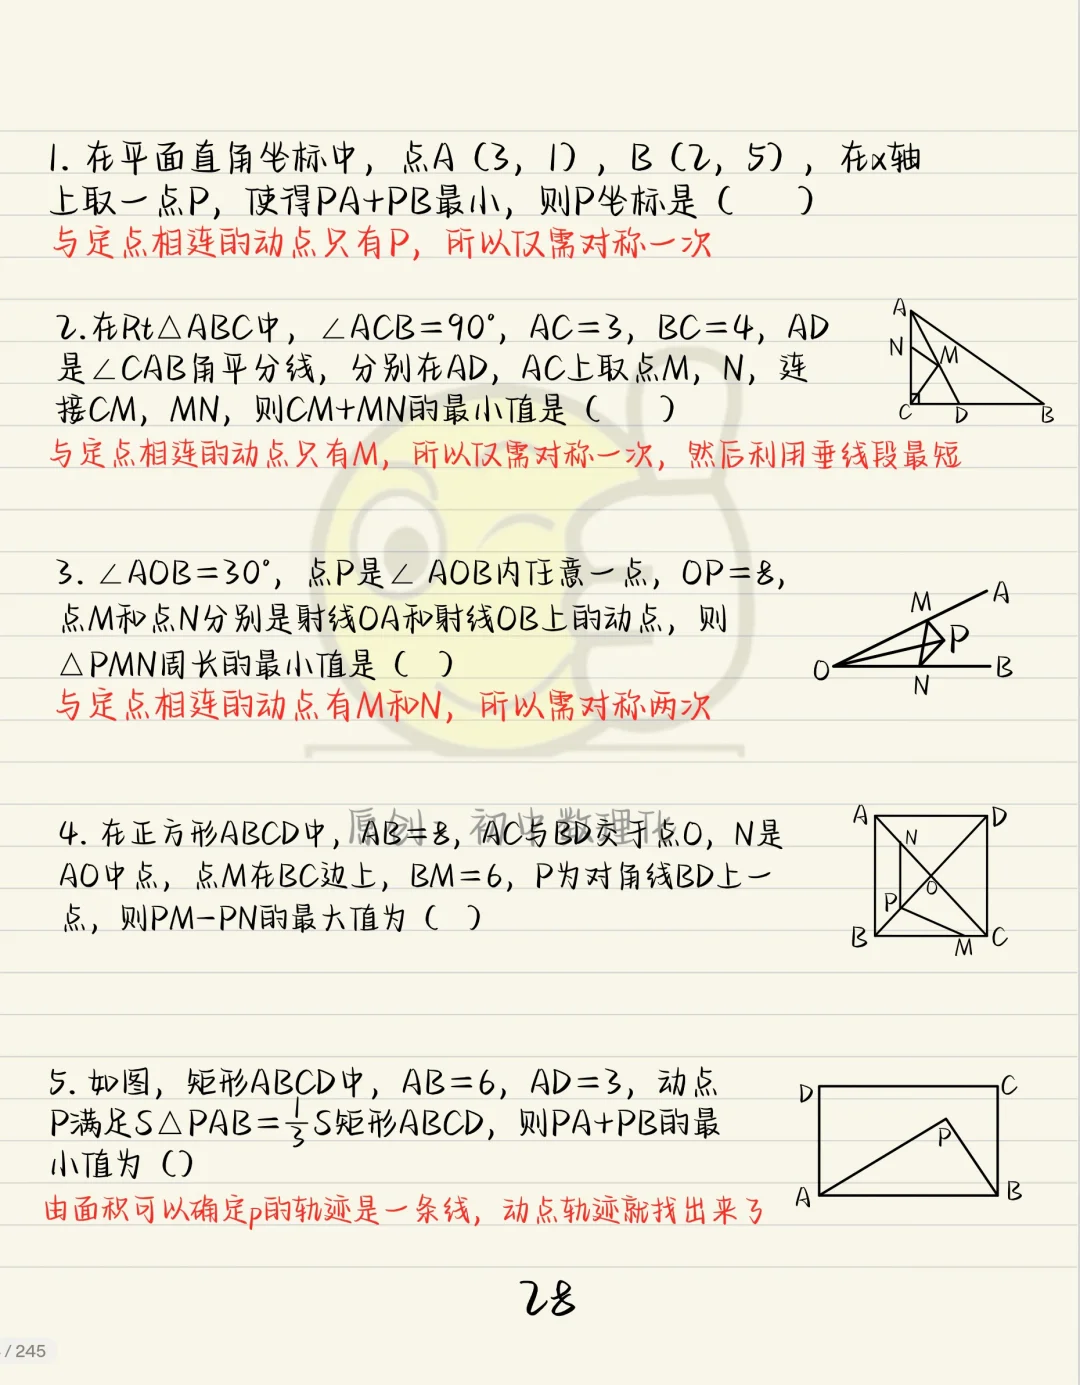 1. 在平面直角坐标中，点A（3，1），B（2，5），在x轴
上取一点P，使得PA+PB最小，则P坐标是（ ）
与定点相连的动点只有P，所以仅需对称一次
2.在Rt△ABC中，∠ACB=90°，AC=3，BC=4，AD
是∠CAB角平分线，分别在AD，AC上取点M，N，连
接CM，MN，则CM+MN的最小值是（ ）
A
N
M
C
D
B
与定点相连的动点只有M，所以仅需对称一次，然后利用垂线段最短
3. ∠AOB=30°，点P是∠AOB内任意一点，OP=8，
点M和点N分别是射线OA和射线OB上的动点，则
△PMN周长的最小值是（ ）
M
A
P
O
B
N
与定点相连的动点有M和N，所以需对称两次
原创：初中数理化
4. 在正方形ABCD中，AB=8，AC与BD交于点O，N是
AO中点，点M在BC边上，BM=6，P为对角线BD上一
点，则PM-PN的最大值为（ ）
A
D
N
O
P
B
M
C
5. 如图，矩形ABCD中，AB=6，AD=3，动点
P满足S△PAB=1/3S矩形ABCD，则PA+PB的最
小值为（）
D
C
P
A
B
由面积可以确定p的轨迹是一条线，动点轨迹就找出来了
28
/ 245